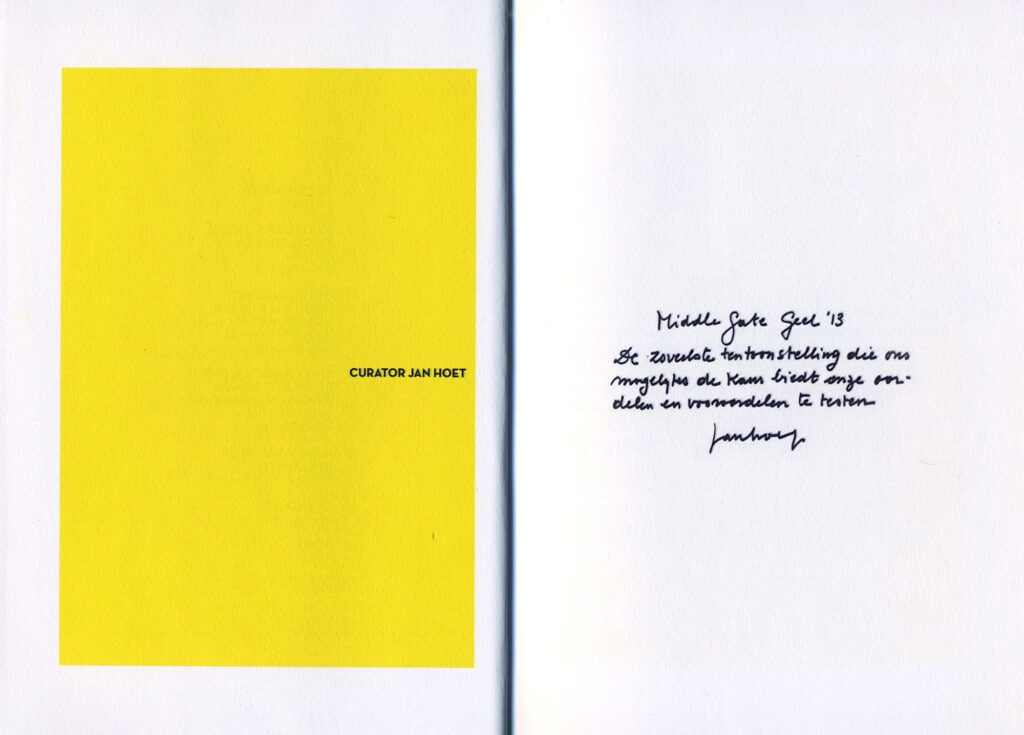 CURATOR JAN HOET
Middle Gate Geel '13
De zoveelste tentoonstelling die ons
mogelijks de kans biedt onze oor-
delen en vooroordelen te testen
Jan Hoet